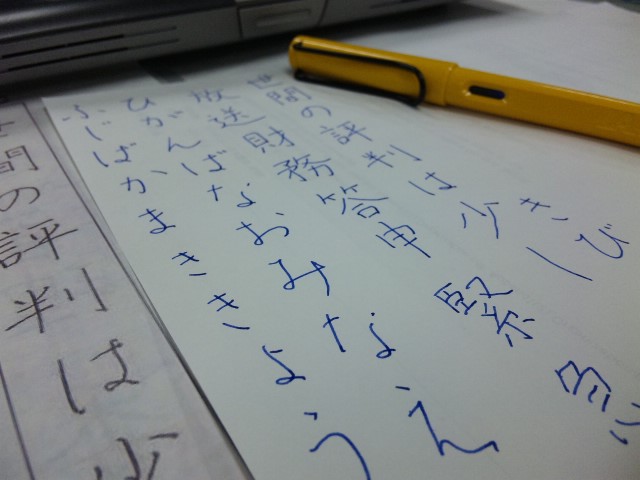 きび
世間の評判は少し
放送財務答申
ひがんばなおみなえ
ふじばかまききょう
世間の評判は少